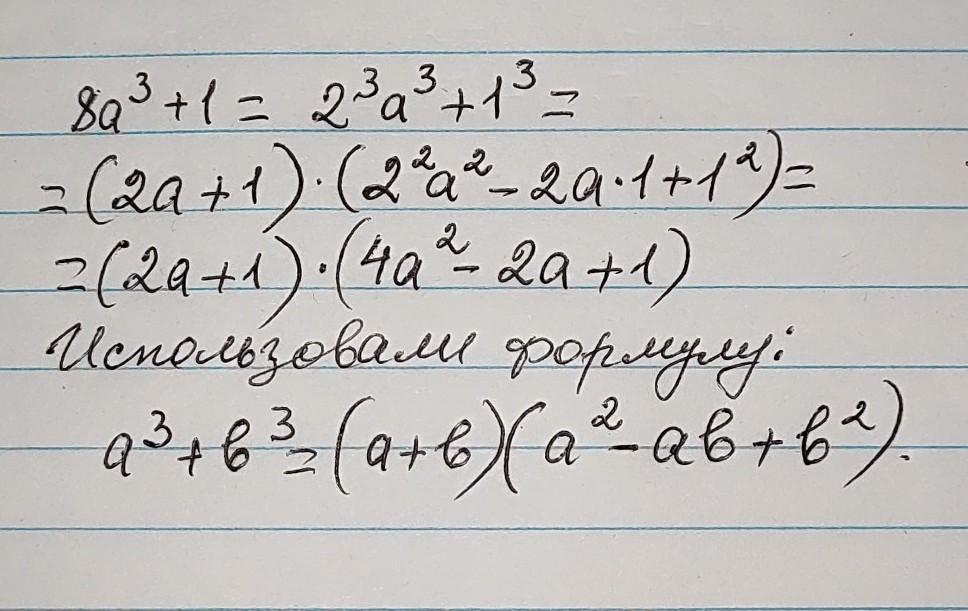 8a³+1 = 2³a³+1³ =
= (2a+1)·(2²a²-2a·1+1²)=
=(2a+1)·(4a²-2a+1)
Использовали формулу:
a³+b³=(a+b)(a²-ab+b²).